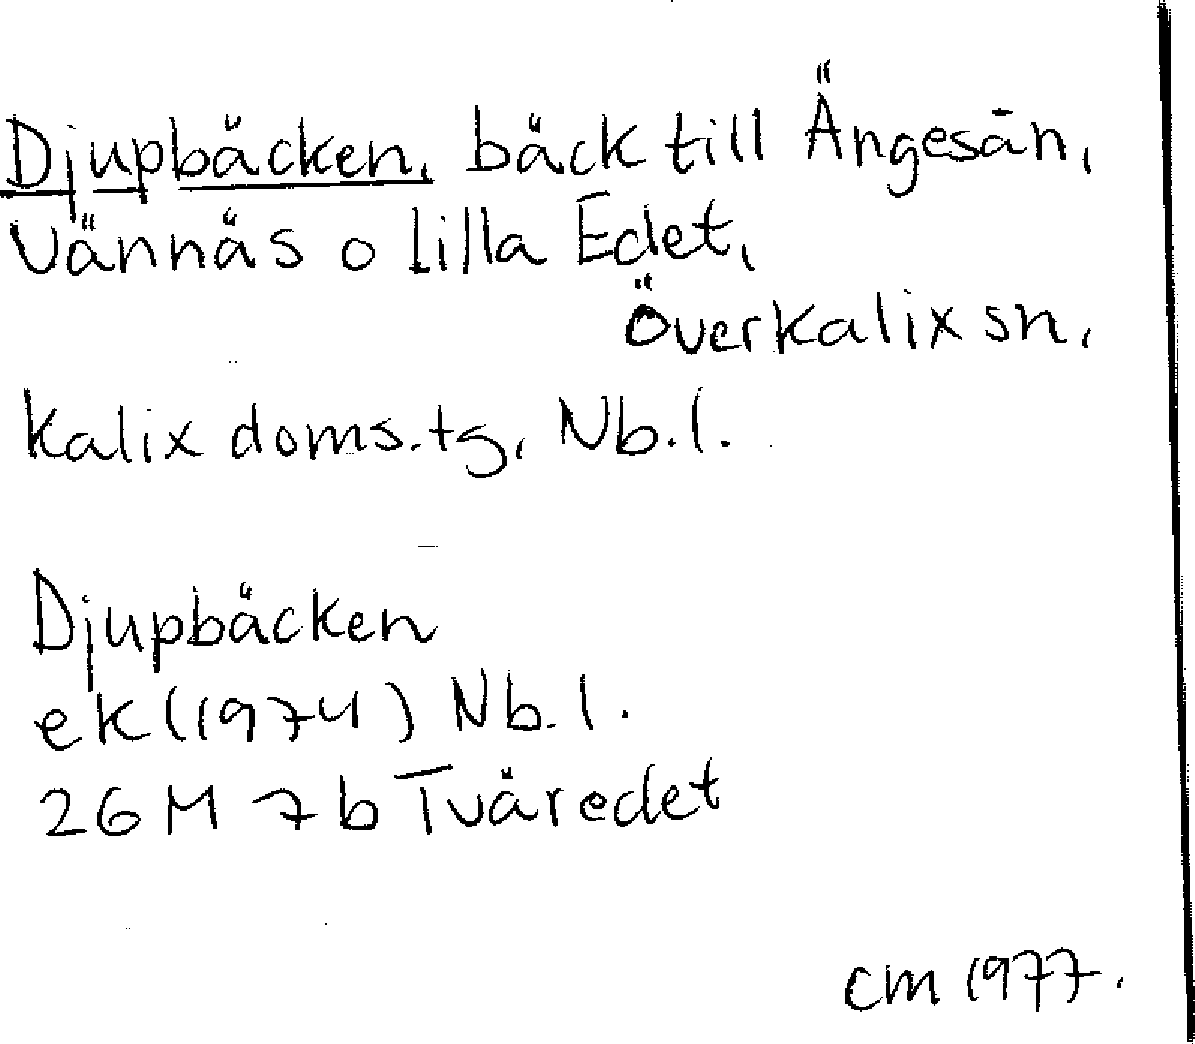 Djupbäcken, bäck till Ängesån,
Vännäs o Lilla Edet,
Överkalix sn,
Kalix doms.tg, Nb.l.
Djupbäcken
ek (1974) Nb.l.
26 M 7b Tväredet
CM 1977.